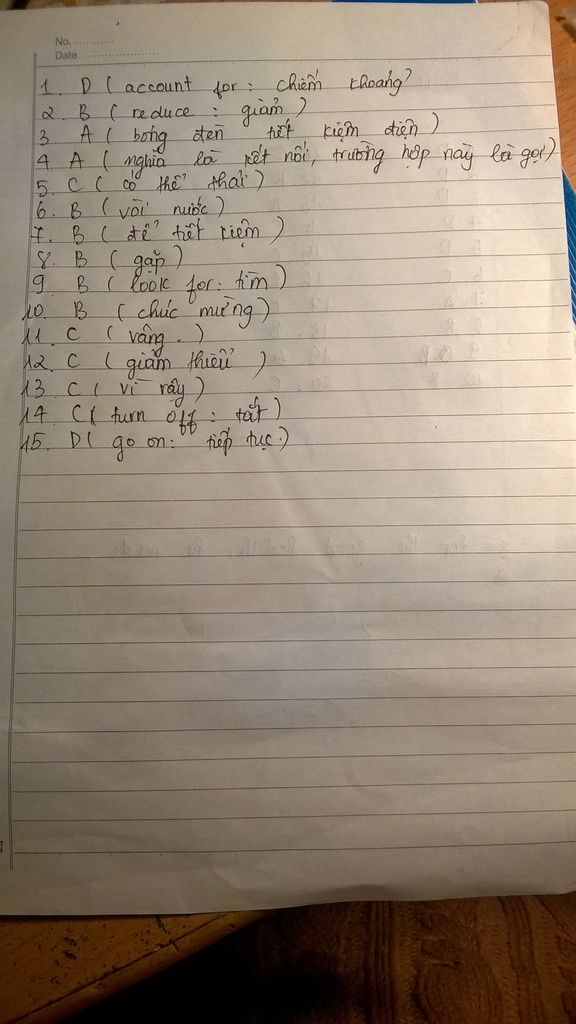 No. ...........
Date .......................
1. D ( account for : chiếm khoảng
2. B ( reduce : giảm )
3. A ( bóng đèn tiết kiệm điện )
4 A ( nghĩa là kết nối, trường hợp này là gọi)
5. C ( có thể thải )
6. B ( vòi nước )
7. B ( để tiết kiệm )
8. B ( gặp )
9 B ( look for : tìm )
10. B ( chúc mừng )
11. C ( vâng . )
12. C ( giảm thiểu )
13 C ( vì vậy )
14 C ( turn off : tắt )
15. D ( go on : tiếp tục .)